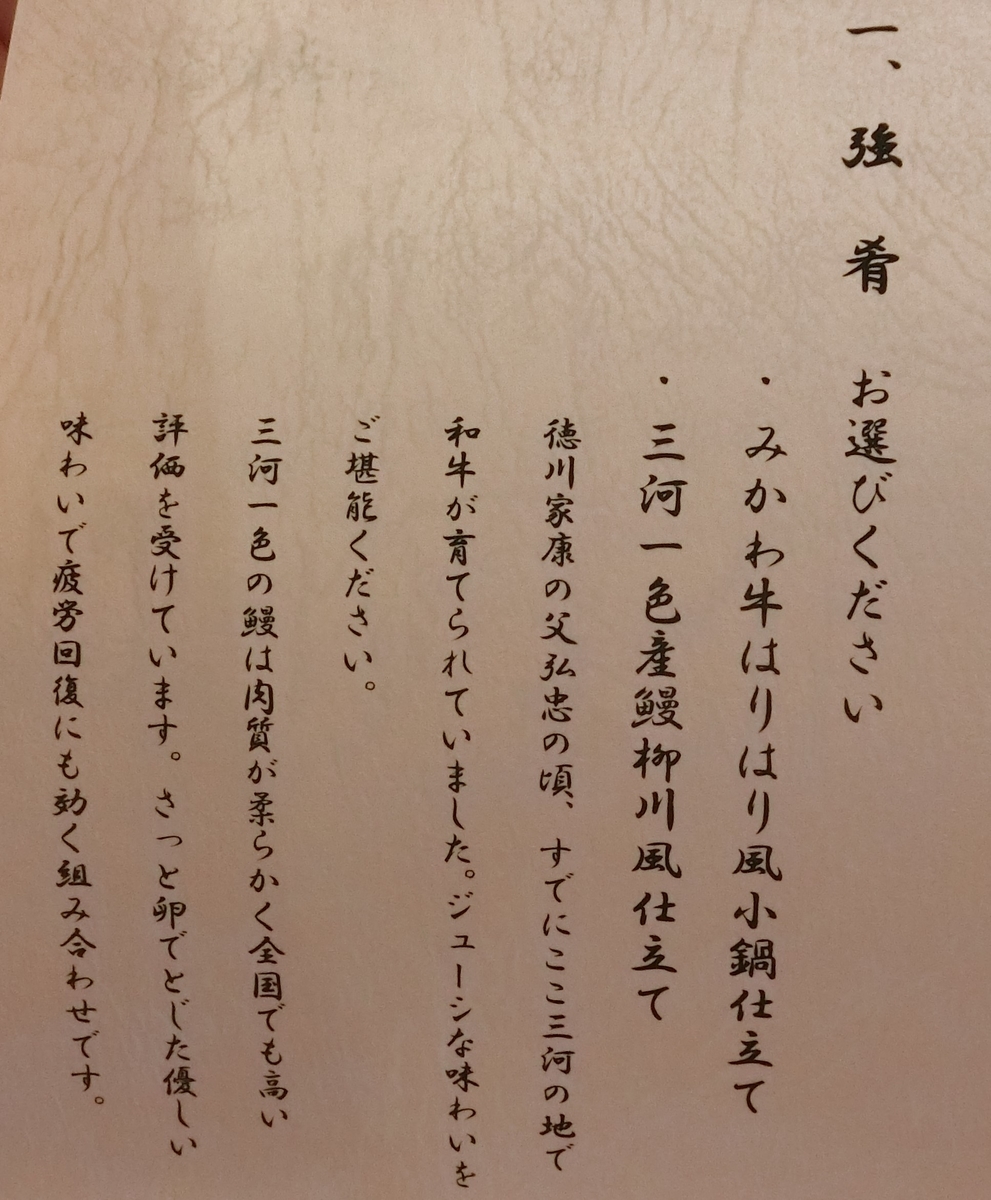 一、強肴 お選びください
・みかわ牛はりはり風小鍋仕立て
・三河一色産鰻柳川風仕立て
徳川家康の父弘忠の頃、すでにここ三河の地で
和牛が育てられていました。ジューシな味わいを
ご堪能ください。
三河一色の鰻は肉質が柔らかく全国でも高い
評価を受けています。さっと卵でとじた優しい
味わいで疲労回復にも効く組み合わせです。